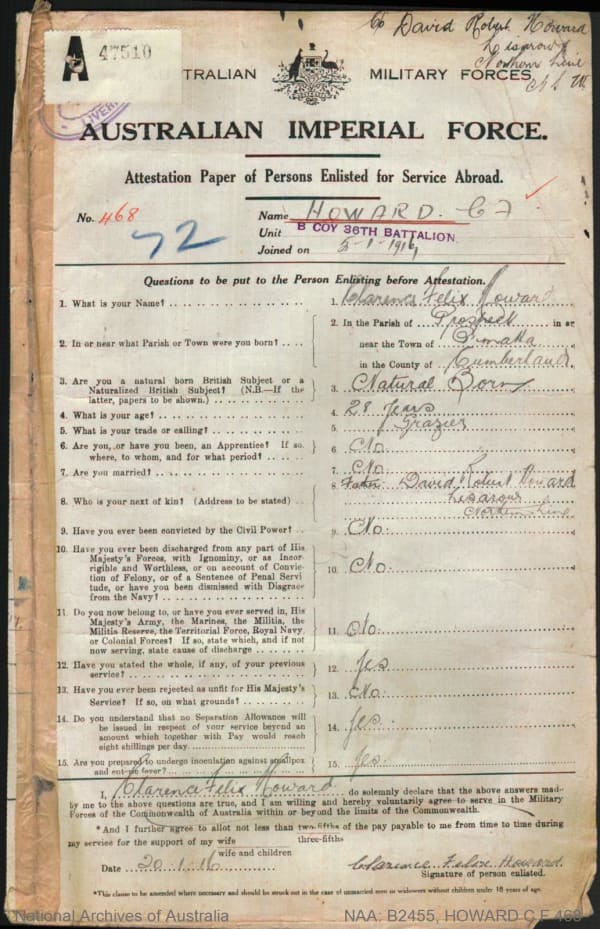 C/o David Robert Howard
Northern Line
N S W
A 47510
AUSTRALIAN MILITARY FORCES.
AUSTRALIAN IMPERIAL FORCE.
Attestation Paper of Persons Enlisted for Service Abroad.
No. 468 Name HOWARD. C F
72
Unit B COY 36TH BATTALION
Joined on 5-1-1916
Questions to be put to the Person Enlisting before Attestation.
1. What is your Name? 1. Clarence Felix Howard
2. In or near what Parish or Town were you born? 2. In the Parish of Prospect in or
near the Town of P'matta
in the County of Cumberland
3. Are you a natural born British Subject or a
Naturalized British Subject? (N.B.—If the
latter, papers to be shown.) 3. Natural Born
4. What is your age? 4. 28 years
5. What is your trade or calling? 5. Grazier
6. Are you, or have you been, an Apprentice? If so,
where, to whom, and for what period? 6. No
7. Are you married? 7. No
8. Who is your next of kin? (Address to be stated) 8. Father David Robert Howard
Northern Line
9. Have you ever been convicted by the Civil Power? 9. No.
10. Have you ever been discharged from any part of His
Majesty's Forces, with Ignominy, or as Incor-
rigible and Worthless, or on account of Convic-
tion of Felony, or of a Sentence of Penal Servi-
tude, or have you been dismissed with Disgrace
from the Navy? 10. No.
11. Do you now belong to, or have you ever served in, His
Majesty's Army, the Marines, the Militia, the
Militia Reserve, the Territorial Force, Royal Navy,
or Colonial Forces? If so, state which, and if not
now serving, state cause of discharge 11. No.
12. Have you stated the whole, if any, of your previous
service? 12. Yes
13. Have you ever been rejected as unfit for His Majesty's
Service? If so, on what grounds? 13. No.
14. Do you understand that no Separation Allowance will
be issued in respect of your service beyond an
amount which together with Pay would reach
eight shillings per day. 14. Yes.
15. Are you prepared to undergo inoculation against smallpox
and enteric fever? 15. Yes.
I, Clarence Felix Howard do solemnly declare that the above answers made
by me to the above questions are true, and I am willing and hereby voluntarily agree to serve in the Military
Forces of the Commonwealth of Australia within or beyond the limits of the Commonwealth.
*And I further agree to allot not less than two-fifths of the pay payable to me from time to time during
three-fifths
my service for the support of my wife
wife and children
Date 20.1.16 Clarence Felix Howard.
Signature of person enlisted.
*This clause to be amended where necessary and should be struck out in the case of unmarried men or widowers without children under 18 years of age.
National Archives of Australia NAA: B2455, HOWARD C F 468